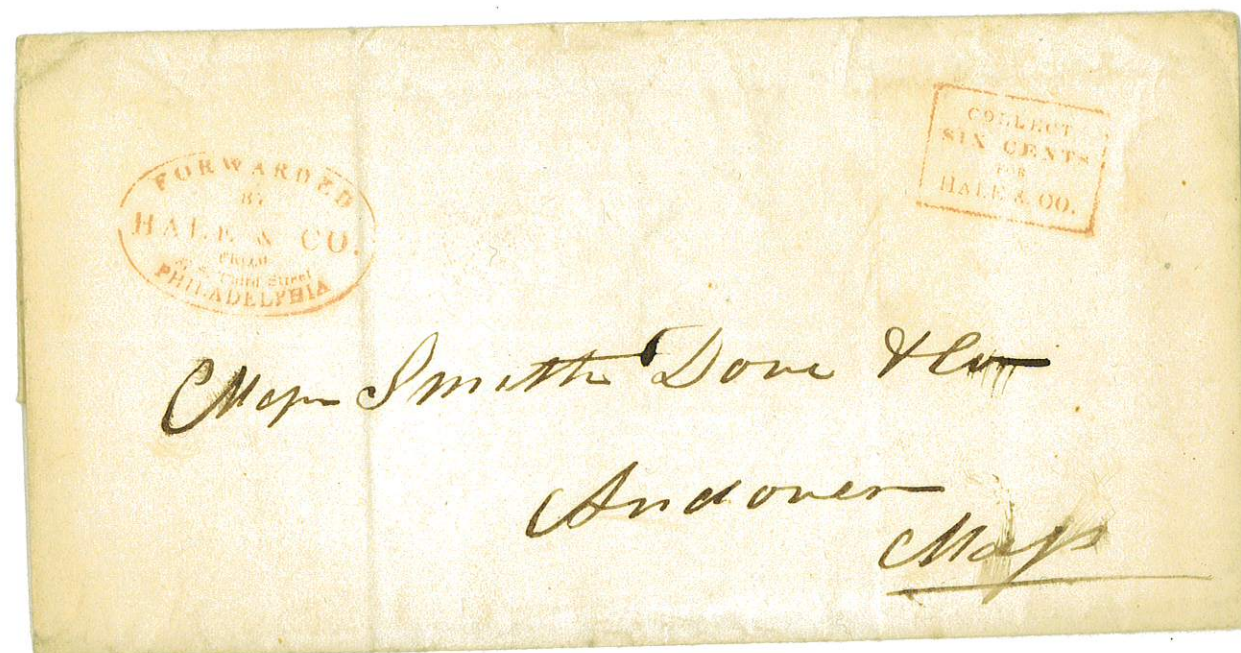 FORWARDED
BY
HALE & CO.
FROM
Third Street
PHILADELPHIA
COLLECT
SIX CENTS
FOR
HALE & CO.
Messrs Smith Dove & Co
Andover
Mass